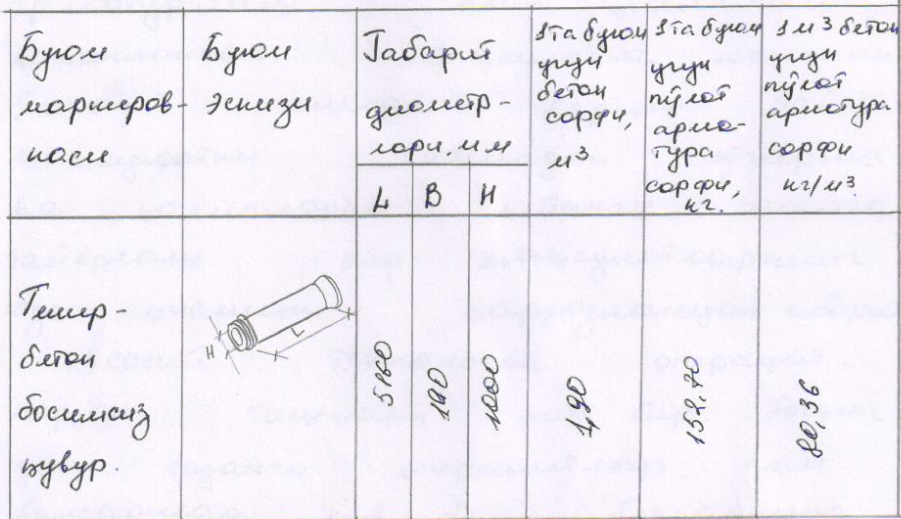 Буюм
маркиров-
каси
Буюм
эскизи
Габарит
диаметр-
лари, мм
L B H
1 та буюм
учун
бетон
сарфи,
м³
1 та буюм
учун
пўлат
арма-
тура
сарфи,
кг.
1 м³ бетон
учун
пўлат
арматура
сарфи
кг/м³.
Темир-
бетон
босимсиз
қувур
H
L
5100
100
1000
1,90
152,70
80,36